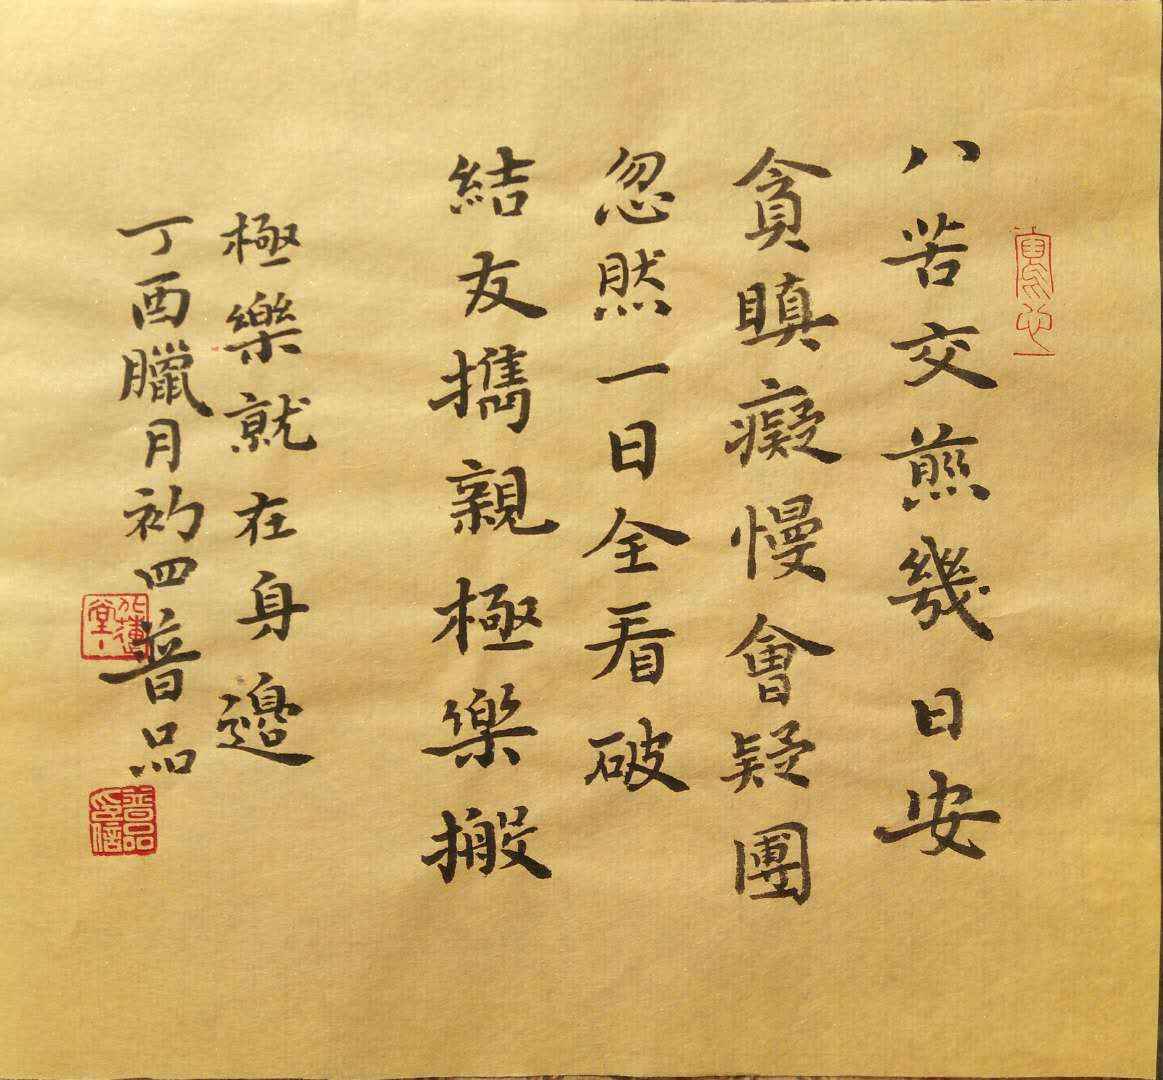 八苦交煎幾日安
貪瞋癡慢會疑團
忽然一日全看破
結友攜親極樂搬
極樂就在身邊
丁酉臘月初四普品
普品印信